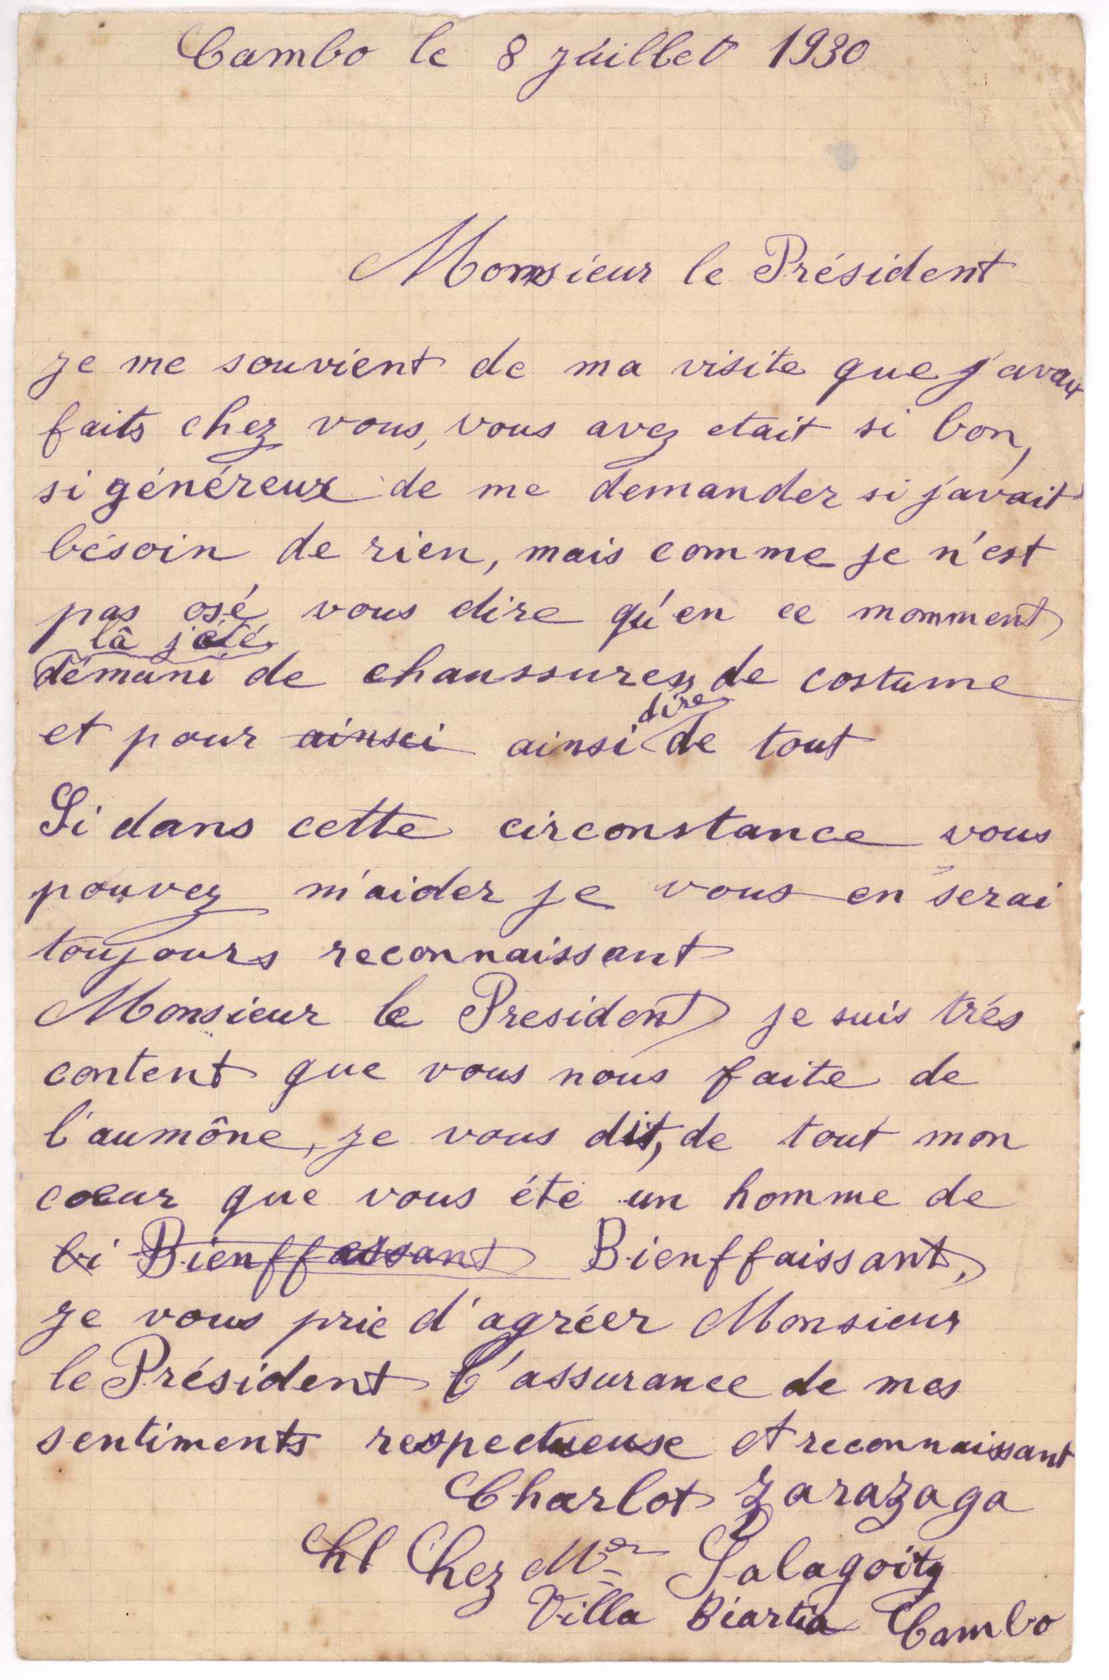 Cambo le 8 juillet 1930
Monsieur le Président
je me souvient de ma visite que j'avais
faits chez vous, vous avez etait si bon,
si généreux de me demander si j'avait
bésoin de rien, mais comme je n'est
pas osé vous dire qu'en ce momment
là j'été
démuni de chaussures, de costume
et pour ainsci ainsi dire de tout
Si dans cette circonstance vous
pouvez m'aider je vous en serai
toujours reconnaissant
Monsieur le President je suis trés
content que vous nous faite de
l'aumône, je vous dit, de tout mon
coeur que vous été un homme de
bi Bienffassant Bienffaissant,
je vous prie d'agréer Monsieur
le Président l'assurance de mes
sentiments respectueuse et reconnaissant
Charlot Zarazaga
Chez Mr Salagoity
Villa Biartia Cambo